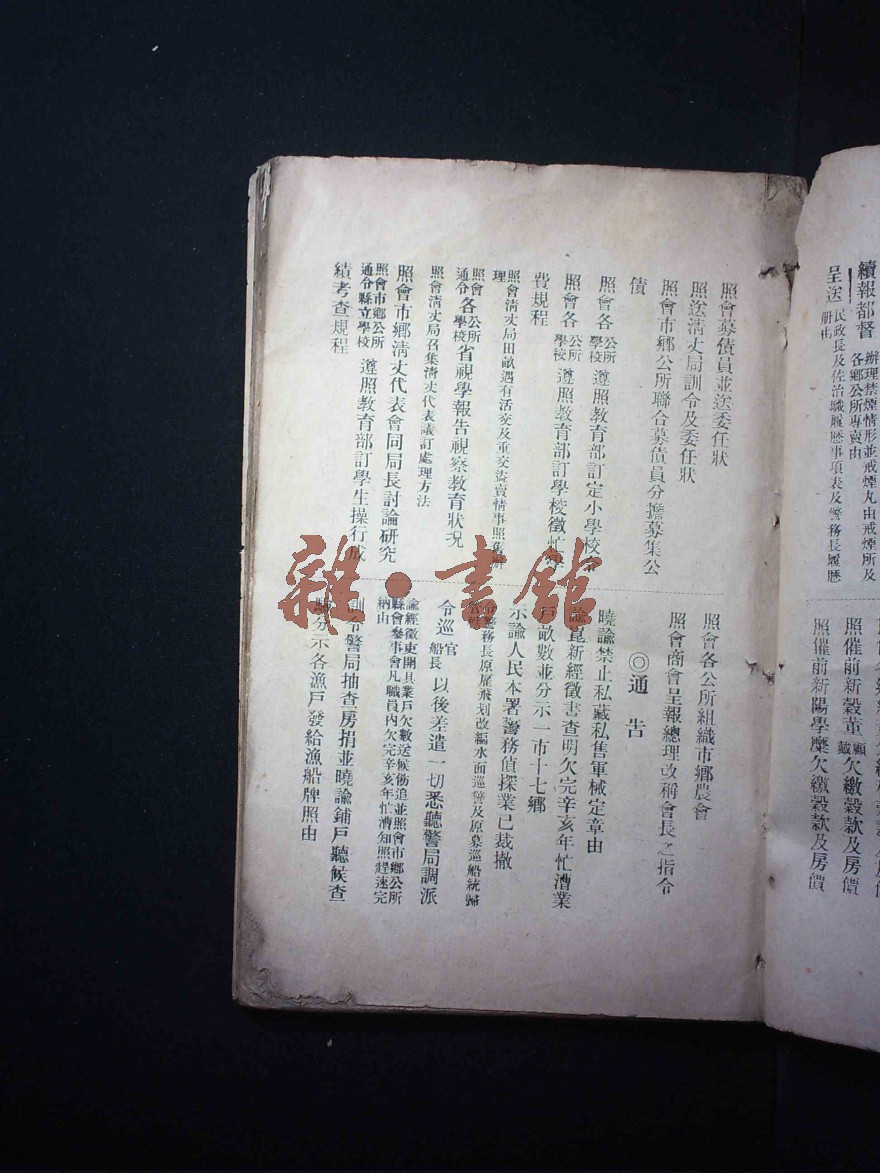 續報都督 辦理禁煙情形並戒煙丸由戒煙所及各鄉公所專賣由
呈送 民政長及佐治職履歷事項表及警務長履歷册由
照催前新穀董 顧戴 欠繳穀款及房價
照催前新陽學糜欠繳穀款及房價
照會募債員並送委任狀
照送清丈局訓令及委任狀
照會市鄉公所聯合募債員分擔募集公
債
照會各 公所學校 遵照教育部訂定小學校
照會各 公所學校 遵照教育部訂學校徵
費規程
照會清丈局田畝遇有活交及重交盜賣情事照
理
照會通令各 公所學校 省視學報告視察教育狀況
照會清丈局召集清丈代表議訂處理方法
照會市鄉清丈代表會同局長討論研究
照會市鄉公所通令縣立學校 遵照教育部訂學生操行成
績考查規程
照會各公所組織市鄉農會
照會商會呈報總理改稱會長之指令
◎通告
曉諭禁止私藏私售軍械定章由
諭崑新經徵書查明欠完辛亥年忙漕業
戶畝數並分示一市十七鄉
示諭人民本署警務偵探業已裁撤
警務長原雇飛划改編水面巡警及原募巡船統歸
令巡官船長 以後差遣一切悉聽警局調派
諭經徵吏開具業戶欠數送候飭追並照會市鄉公所
縣會參事會凡職員內欠完辛亥年忙漕知照趕速完
納由
訓令警局抽查房捐並曉諭鋪戶聽候查
分示各漁戶發給漁船牌照由
雜·書館